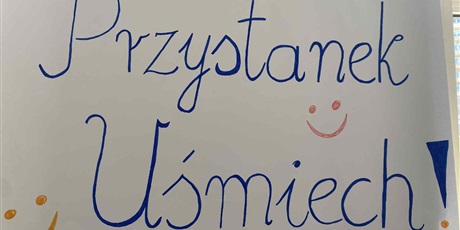 Przystanek
Uśmiech!